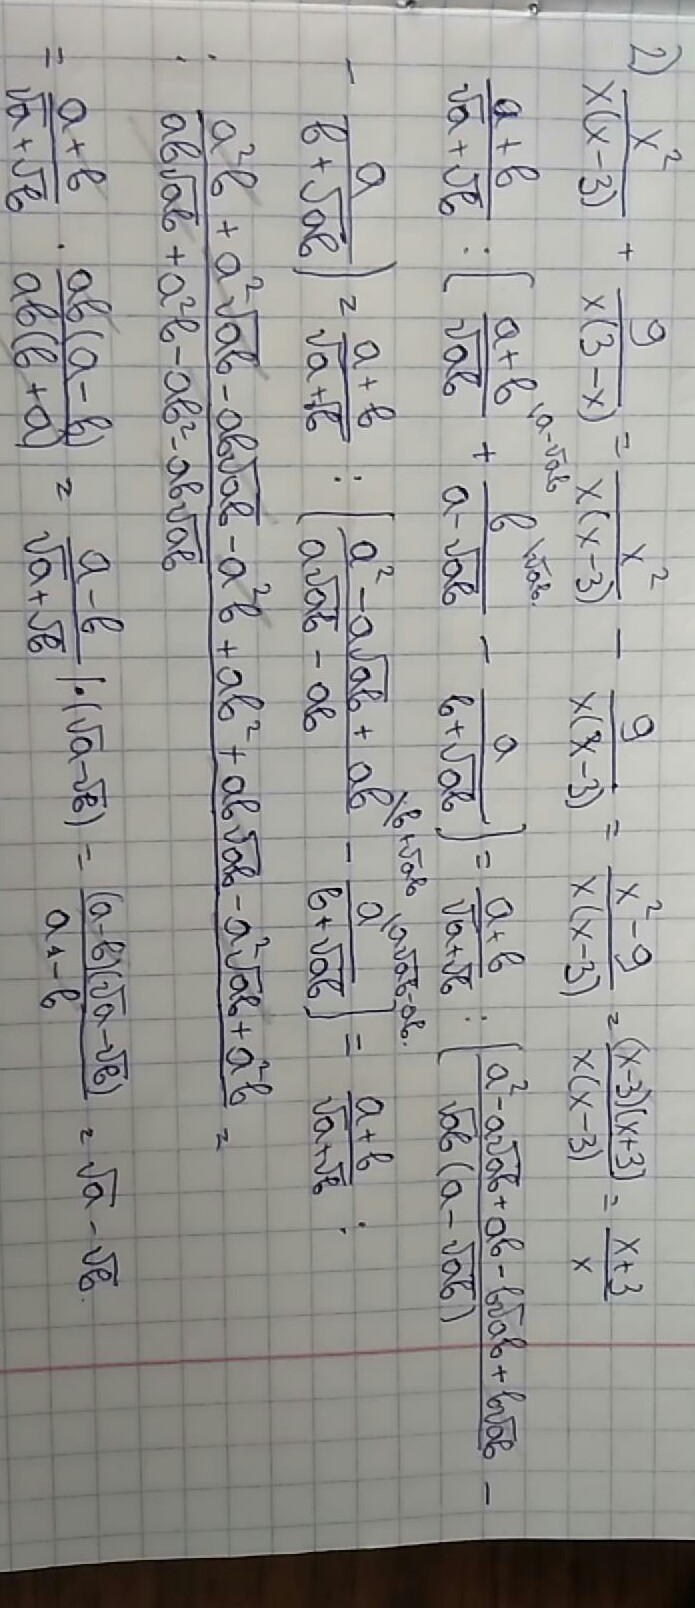 2) x²/x(x-3) + 9/x(3-x) = x²/x(x-3) - 9/x(x-3) = x²-9/x(x-3) = (x-3)(x+3)/x(x-3) = x+3/x
a+b/√a+√b : (a+b/√ab \a-√ab + b/a-√ab \√ab. - a/b+√ab) = a+b/√a+√b : (a²-a√ab+ab-b√ab+b√ab/√ab(a-√ab) -
- a/b+√ab) = a+b/√a+√b : (a²-a√ab+ab/a√ab-ab \b+√ab - a/b+√ab \a√ab-ab.) = a+b/√a+√b :
: a²b+a²√ab-ab√ab-a²b+ab²+ab√ab-a²√ab+a²b/ab√ab+a²b-ab²-ab√ab =
= a+b/√a+√b · ab(a-b)/ab(b+a) = a-b/√a+√b |·(√a-√b) = (a-b)(√a-√b)/a-b = √a-√b.